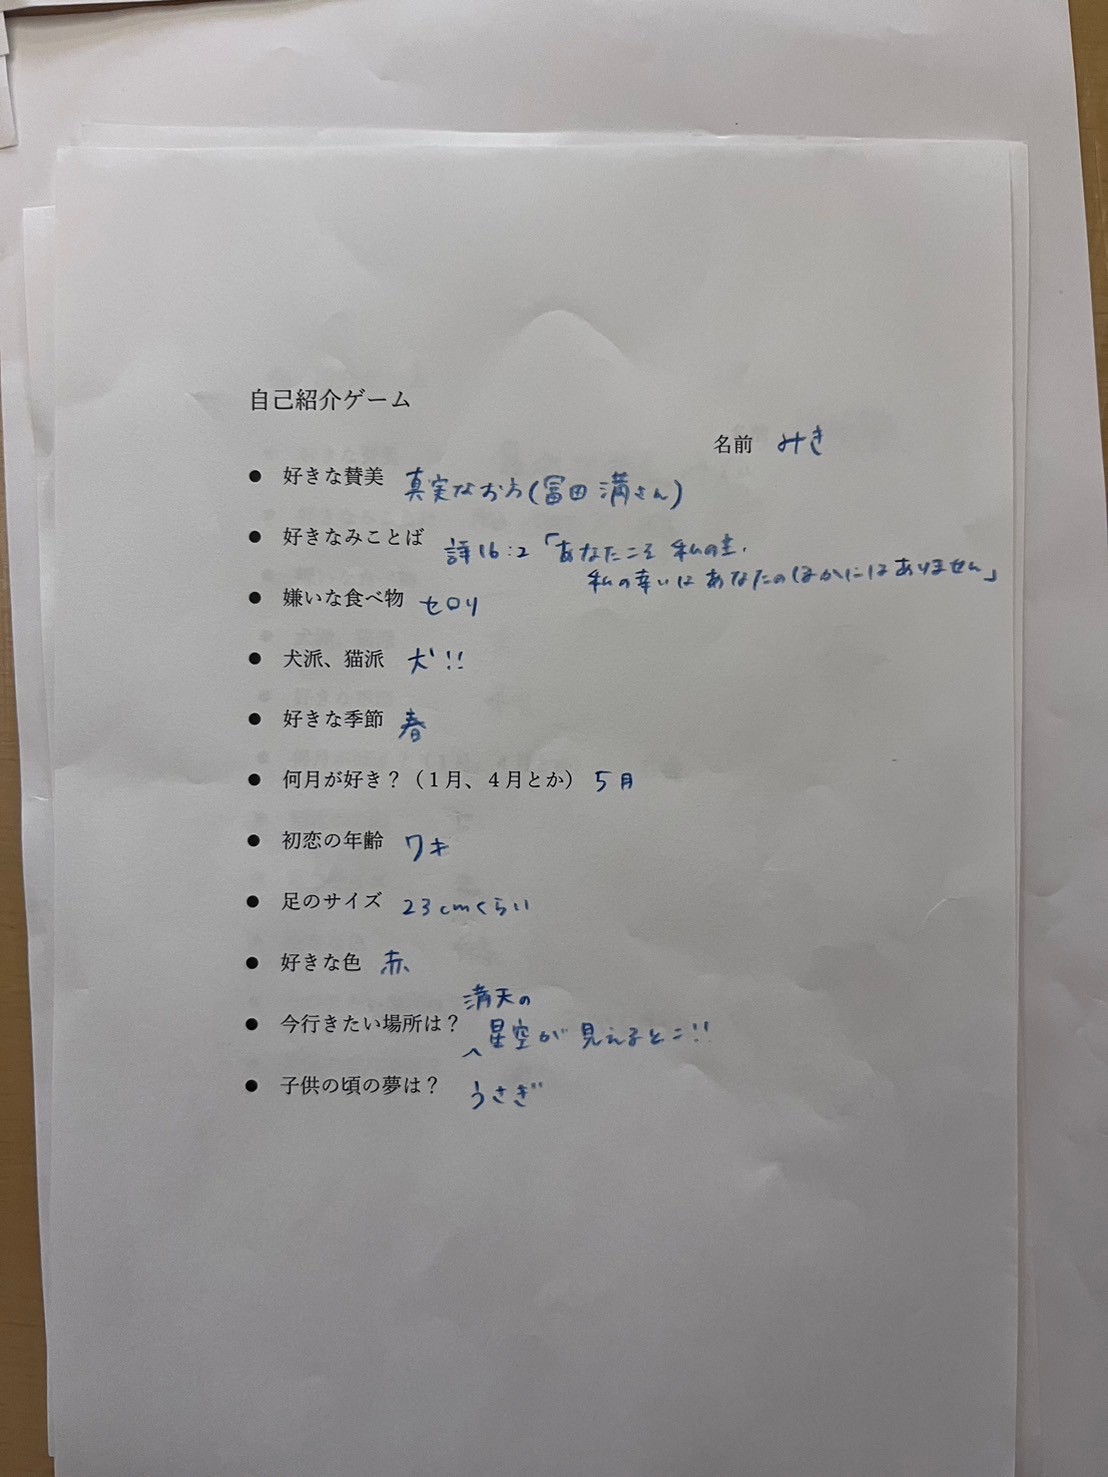 自己紹介ゲーム
名前 みき
● 好きな賛美 真実なお方(冨田満さん)
● 好きなみことば 詩16:2「あなたこそ 私の主.
私の幸いは あなたのほかにはありません」
● 嫌いな食べ物 セロリ
● 犬派、猫派 犬!!
● 好きな季節 春
● 何月が好き？（１月、４月とか） 5月
● 初恋の年齢 7才
● 足のサイズ 23cmくらい
● 好きな色 赤
● 今行きたい場所は？ 満天の
星空が見えるとこ!!
● 子供の頃の夢は？ うさぎ